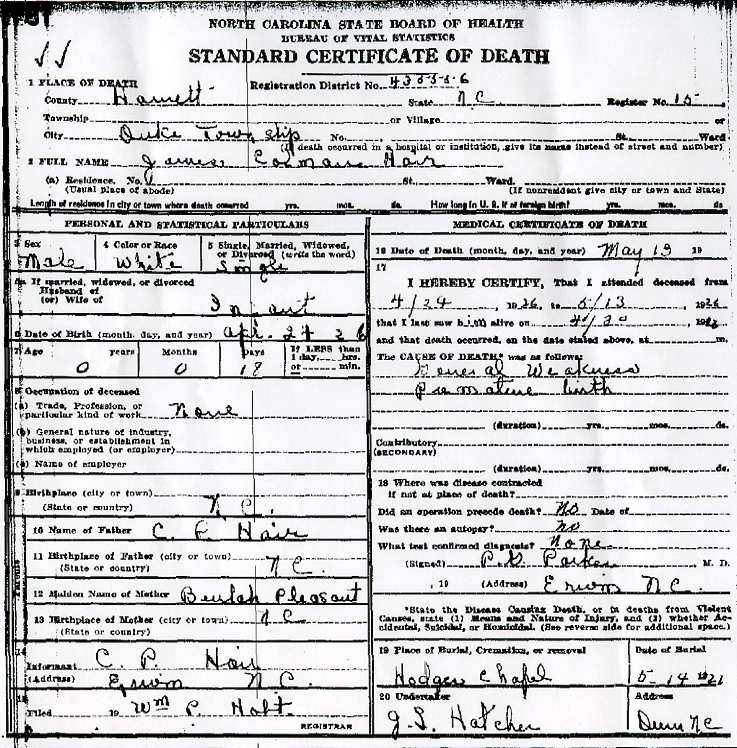 NORTH CAROLINA STATE BOARD OF HEALTH
BUREAU OF VITAL STATISTICS
STANDARD CERTIFICATE OF DEATH
1 PLACE OF DEATH
Registration District No.
County Harnett State N.C. Register No. 15
Township or Village or
City Duke Township No. St. Ward
(If death occurred in a hospital or institution, give its name instead of street and number)
2 FULL NAME James Hair
(a) Residence. No. St. Ward.
(Usual place of abode) (If nonresident give city or town and State)
Length of residence in city or town where death occurred yrs. mos. ds. How long in U. S. if of foreign birth? yrs. mos. ds.
PERSONAL AND STATISTICAL PARTICULARS
3 Sex 4 Color or Race 5 Single, Married, Widowed, or Divorced (write the word)
Male White Single
5a If married, widowed, or divorced
Husband of
(or) Wife of Infant
6 Date of Birth (month, day, and year) Apr. 24 26
7 Age years Months Days If LESS than
1 day, hrs.
or min.
0 0 18
8 Occupation of deceased
(a) Trade, Profession, or
particular kind of work None
(b) General nature of industry,
business, or establishment in
which employed (or employer)
(c) Name of employer
9 Birthplace (city or town)
(State or country) N C.
10 Name of Father C. P. Hair
11 Birthplace of Father (city or town)
(State or country) N C.
12 Maiden Name of Mother Beulah Pleasant
13 Birthplace of Mother (city or town) N C
(State or country)
Parents
14
Informant C. P. Hair
(Address) Erwin N C.
15
Filed 19 Wm P. Holt
REGISTRAR
MEDICAL CERTIFICATE OF DEATH
16 Date of Death (month, day, and year) May 13 19
17
I HEREBY CERTIFY, That I attended deceased from
4/24, 1926, to 5/13, 1926
that I last saw him alive on 4/30, 19
and that death occurred, on the date stated above, at m.
The CAUSE OF DEATH* was as follows:
General Weakness
Premature birth
(duration) yrs. mos. ds.
Contributory
(SECONDARY)
(duration) yrs. mos. ds.
18 Where was disease contracted
if not at place of death?
Did an operation precede death? No Date of
Was there an autopsy? no
What test confirmed diagnosis? None
(Signed) Parker M. D.
, 19 (Address) Erwin N C.
*State the Disease Causing Death, or in deaths from Violent
Causes, state (1) Means and Nature of Injury, and (2) whether Ac-
cidental, Suicidal, or Homicidal. (See reverse side for additional space.)
19 Place of Burial, Cremation, or removal Date of Burial
Hodges Chapel 5-14
20 Undertaker Address
J. S. Hatcher Dunn N C